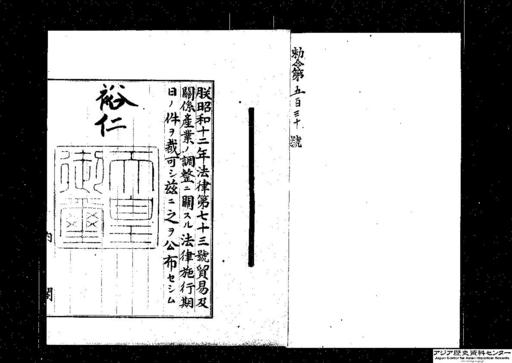 勅令第五百三十號
朕昭和十二年法律第七十三號貿易及
關係產業ノ調整ニ關スル法律施行期
日ノ件ヲ裁可シ茲ニ之ヲ公布セシム
裕仁
天皇御璽
内閣
アジア歴史資料センター
Japan Center for Asian Historical Records